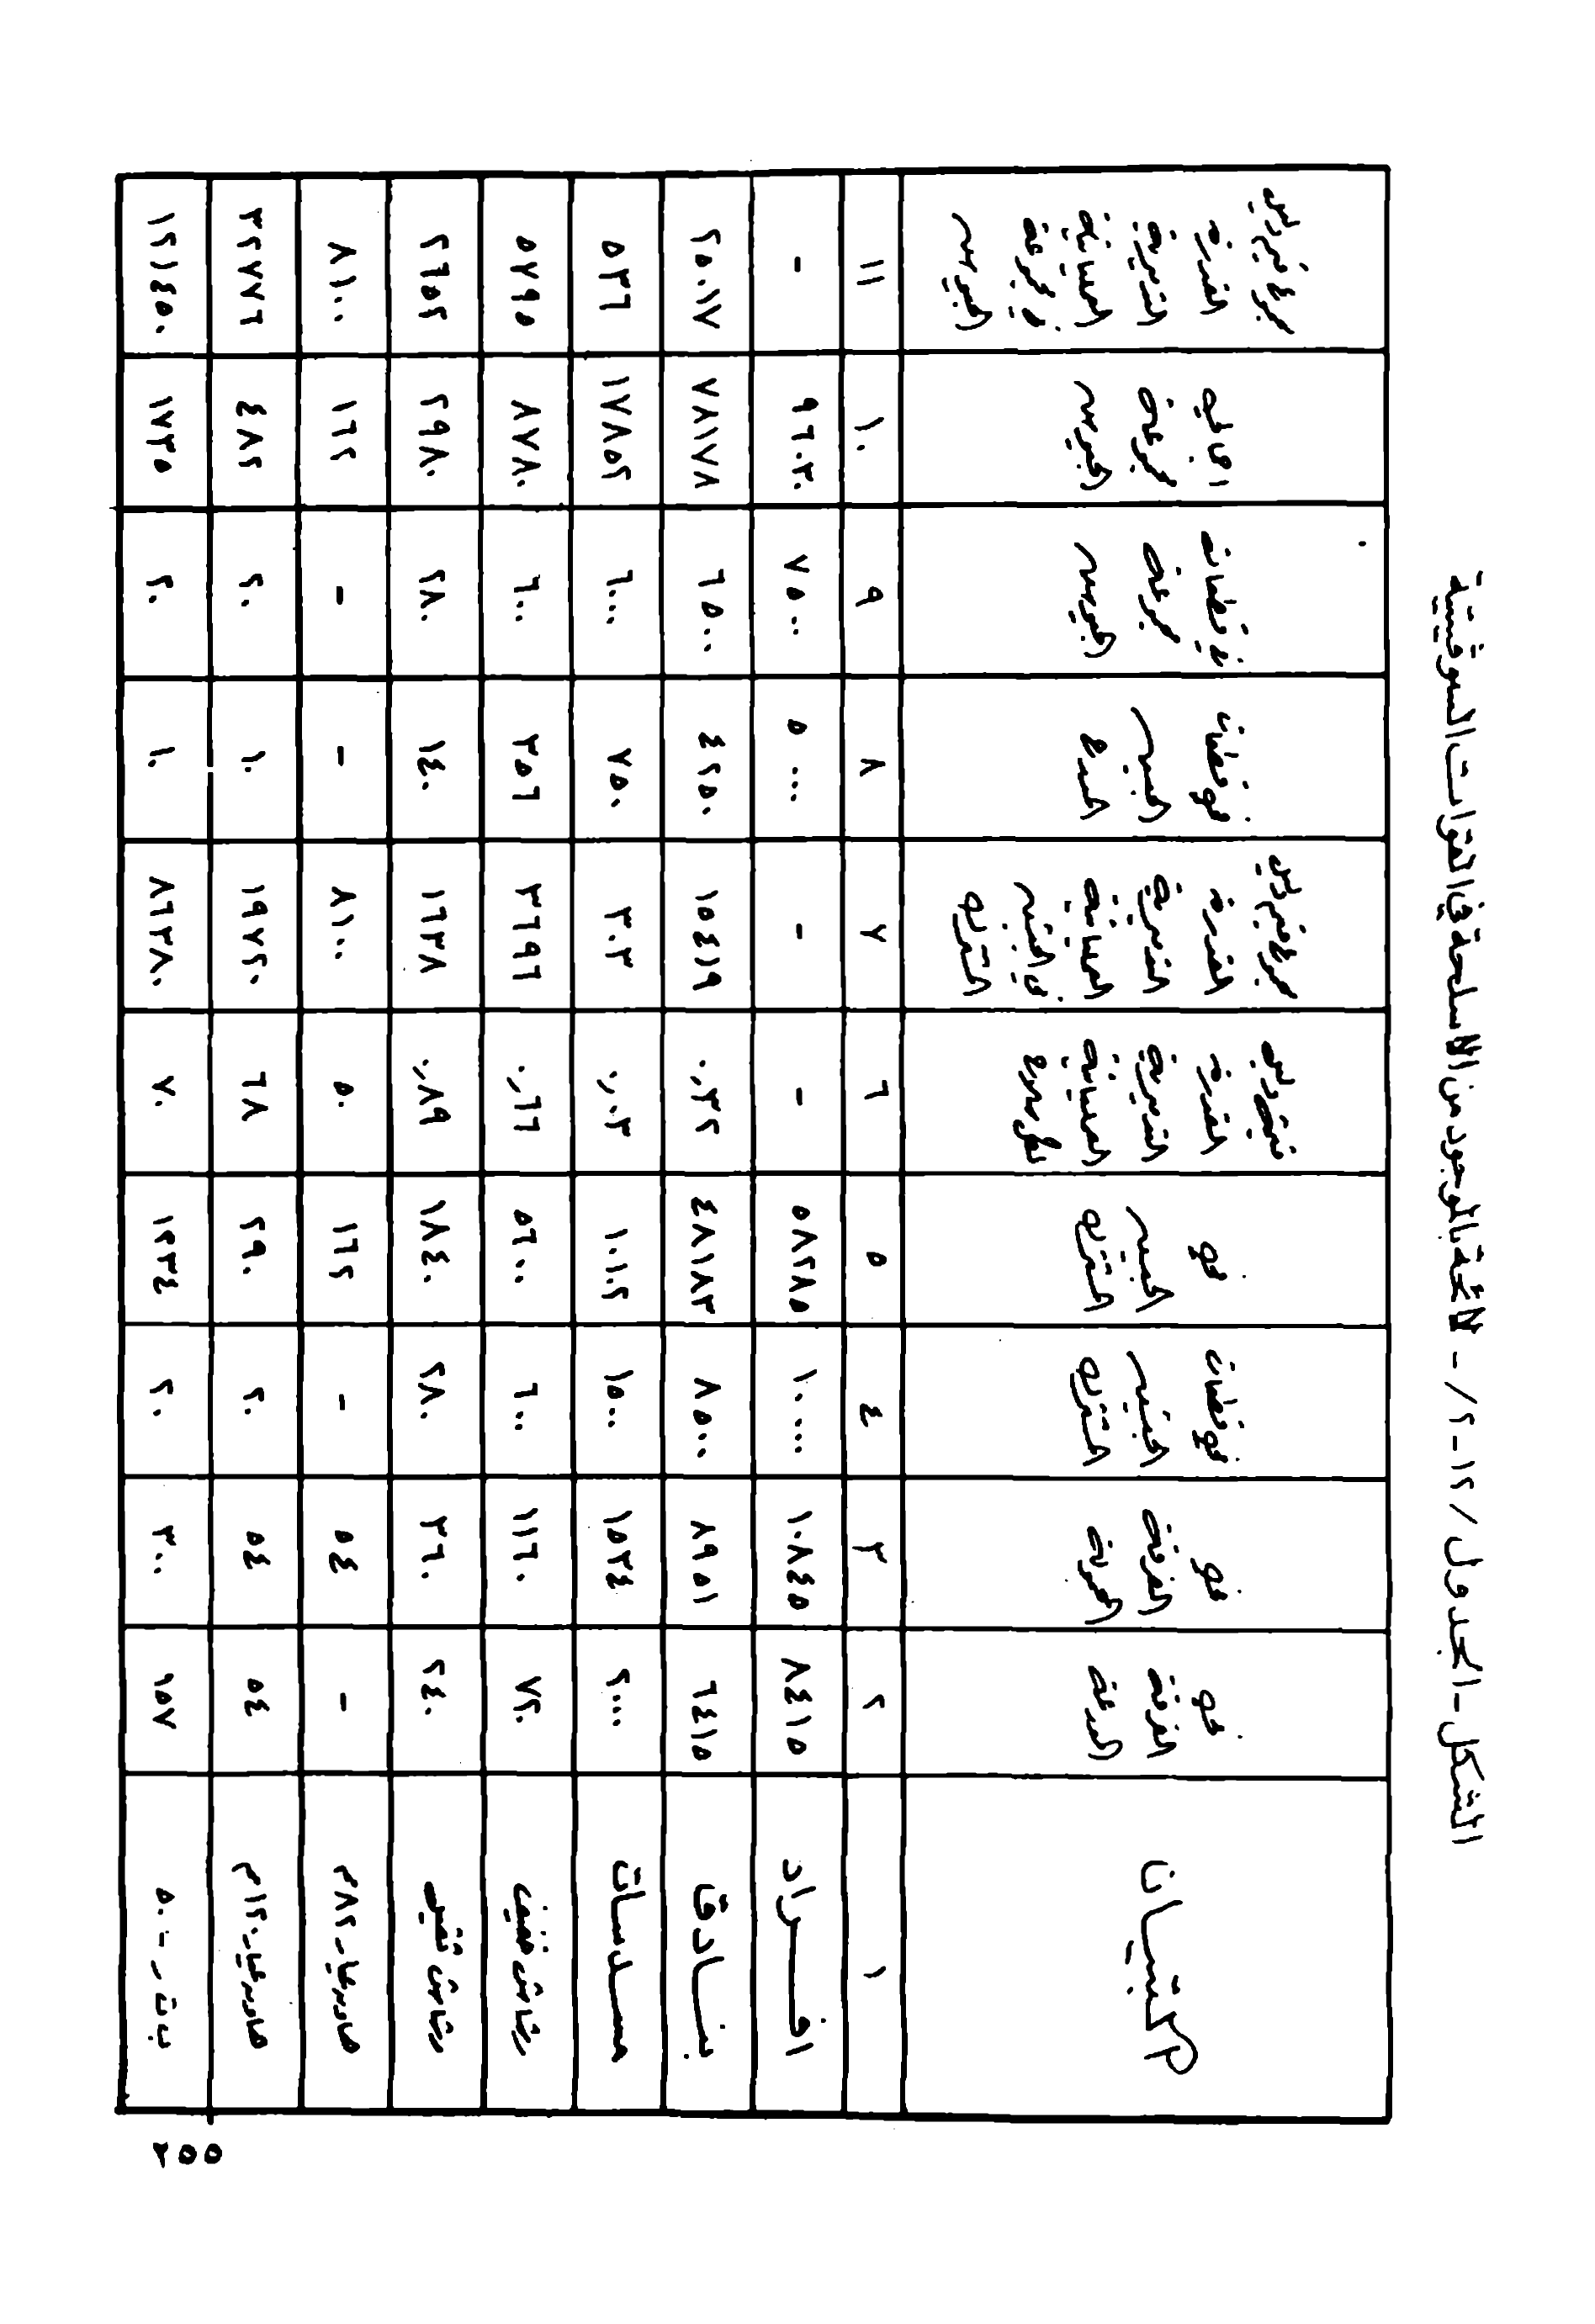 الشكل - الجدول /١٢-٢/ - لائحة بالموجود من الأسلحة في القوات السوفيتية
البيان
في
الفرقة
المدرعة
في
الفرقة
في قطعات
الجيش
المشترك
في
الجيش
المشترك
القدرة
التدميرية
العملياتية
لكل سلاح
القدرة
التدميرية
العملياتية
في الجيش
المشترك
في قطعات
الجيش
المدرع
في قطعات
مجموعة
الجيوش
اجمالي
مجموعة
الجيوش
القدرة
التدميرية
العملياتية
في مجموعة
الجيوش
١ ٢ ٣ ٤ ٥ ٦ ٧ ٨ ٩ ١٠ ١١
افراد ٨٤١٥ ١٠٨٤٥ ١٠٠٠٠ ٥٨٢٨٥ - - ٥٠٠٠ ٧٥٠٠ ٩٦٠٣٠ -
بنادق ٦٤١٥ ٨٩٥١ ٨٥٠٠ ٤٨١٨٣ ٠,٣٢ ١٥٤١٩ ٤٢٥٠ ٦٥٠٠ ٧٨١٧٨ ٢٥٠١٧
مسدسات ٢٠٠٠ ١٥٣٤ ١٥٠٠ ١٠١٠٢ ٠,٠٣ ٣٠٣ ٧٥٠ ٦٠٠٠ ١٧٨٥٢ ٥٣٦
رشاش خفيف ٧٢٠ ١١٦٠ ٦٠٠ ٥٦٠٠ ٠,٦٦ ٣٦٩٦ ٣٥٦ ٦٠٠ ٨٧٨٠ ٥٧٩٥
رشاش ثقيل ٢٤٠ ٣٦٠ ٢٨٠ ١٨٤٠ ٠,٨٩ ١٦٣٨ ١٤٠ ٢٨٠ ٢٩٨٠ ٢٦٥٢
هاون عيار ٨٢م - ٥٤ - ١٦٢ ٥٠ ٨١٠٠ - - ١٦٢ ٨١٠٠
هاون عيار ١٢٠م ٥٤ ٥٤ ٢٠ ٢٩٠ ٦٨ ١٩٧٢٠ ١٠ ٢٠ ٤٨٢ ٣٢٧٧٦
ب.ت.ر - ٥٠ ١٥٧ ٣٠٠ ٢٠ ١٢٣٤ ٧٠ ٨٦٣٨٠ ١٠ ٢٠ ١٧٣٥ ١٢١٤٥٠
٢٥٥